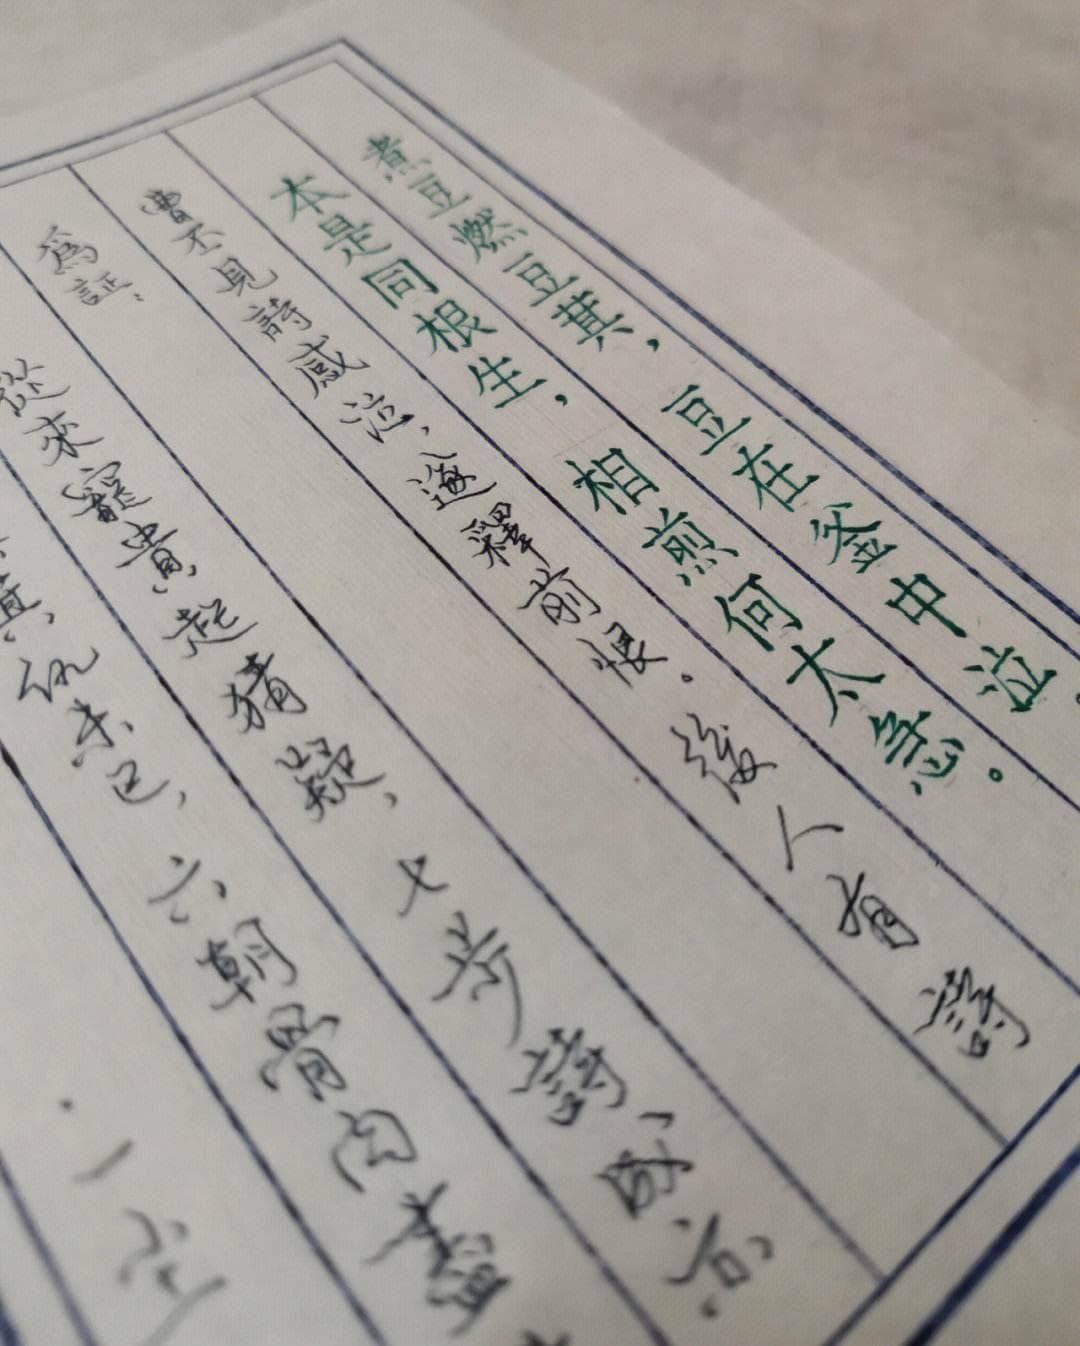 煮豆燃豆萁，豆在釜中泣，
本是同根生，相煎何太急。
曹不見詩感泣，遂釋前恨。後人有詩
爲証：
從來寵貴起猜疑，七步詩成亦
仇未已，六朝骨肉盡